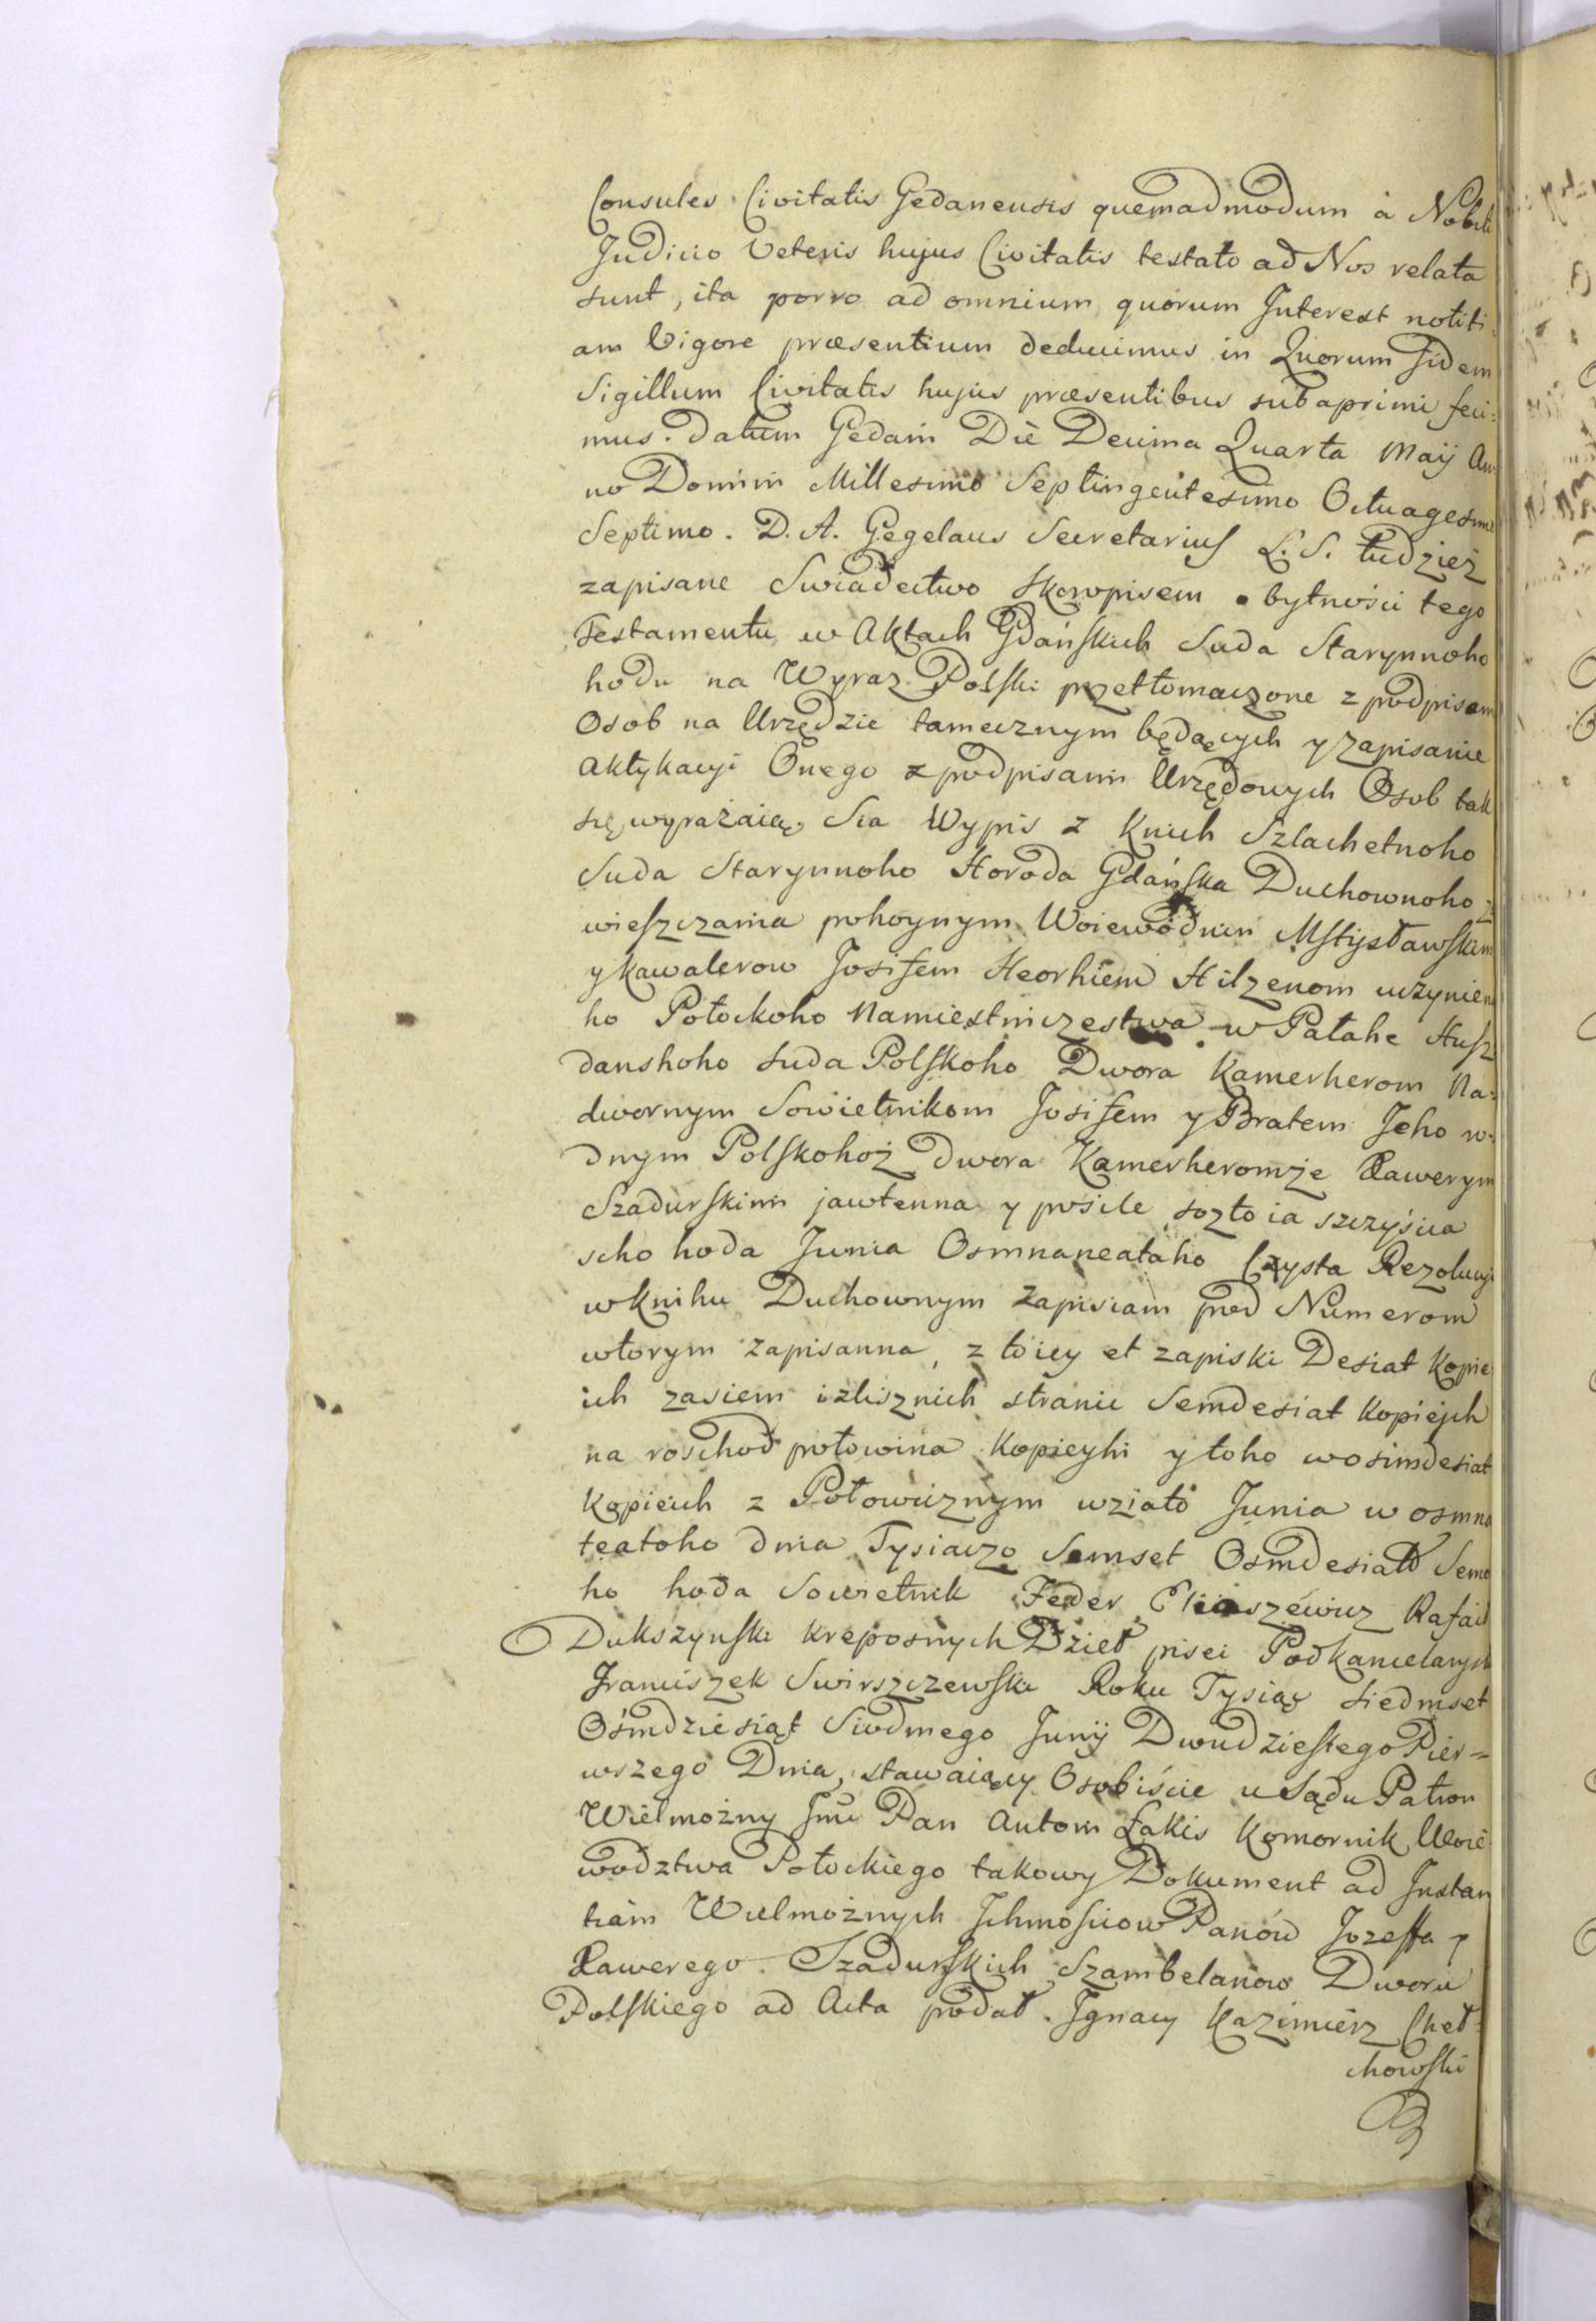 Consules Civitatis Gedanensis quemadmodum à Nobili
Judicio Veteris hujus Civitatis testato ad Nos relata
sunt, ita porro ad omnium quorum Interest notiti:
am Vigore præsentium deducimus in Quorum Fidem
Sigillum Civitatis hujus præsentibus subaprimi feci:
mus. Datum Gedani Die Decima Quarta Maij An
no Domini Millesimo Septingentesimo Octuagesimo
Septimo. D. A. Gegelaus Secretarius L. S. tudzież
zapisane Swiadectwo Skoropisem o bytności tego
Testamentu w Aktach Gdańskich Suda Starynnoho
hodu na Wyraz Polski przetłomaczone z podpisem
Osob na Urzędzie tamecznym będących y zapisanie
aktykacyi Onego z podpisami Urzędowych Osob tak
się wyrażaią. Sia Wypis z Knich Szlachetnoho
Suda Starynnoho Horoda Gdańska Duchownoho z
wieszczania pohoynym Woiewodnin Mstysławskim
y kawalerow Josifem Heorhiem Hilzenom uczynien
ho Połockoho Namiestniczestwa w Pałahe Husz
danshoho suda Polskoho Dwora Kamerherom Na:
dwornym Sowietnikom Josifem y Bratem Jeho w:
dnym Polskohoż dwora Kamerheromże Xawerym
Szadurskimi jawlenna y posile sozło ia szczyśica
scho hoda Junia Osmnaneataho Czysta Rezolucyi
w knihu Duchownym zapisiam pod Numerom
wtorym zapisanna, z toiey et zapiski Desiat Kopie
ich zasiem izlisznich stranic Semdesiat Kopieych
na roschod połowina Kopieyki y toho wosimdesiat
Kopieich z Połowiznym wziato Junia w osmna
teatoho dnia Tysiaczo Semset Osmdesiat Semo
ho hoda Sowietnik Feder Eliaszewicz Rafaił
Dukszynski kreposnych Dzieł pisei Podkancelarysk
Franciszek Swirszczewski Roku Tysiąc siedmset
Ośmdziesiąt Siodmego Junij Dwudziestego Pier=
wszego Dnia, stawaiący Osobiście u Sądu Patron
Wielmożny Jmć Pan Antoni Łakis Komornik Woie
wodztwa Połockiego takowy Dokument ad Instan
tiam Wielmożnych Ichmościow Panów Jozeffa y
Xawerego Szadurskich Szambelanow Dworu
Polskiego ad Acta podał. Ignacy Kazimierz Cheł:
chowski